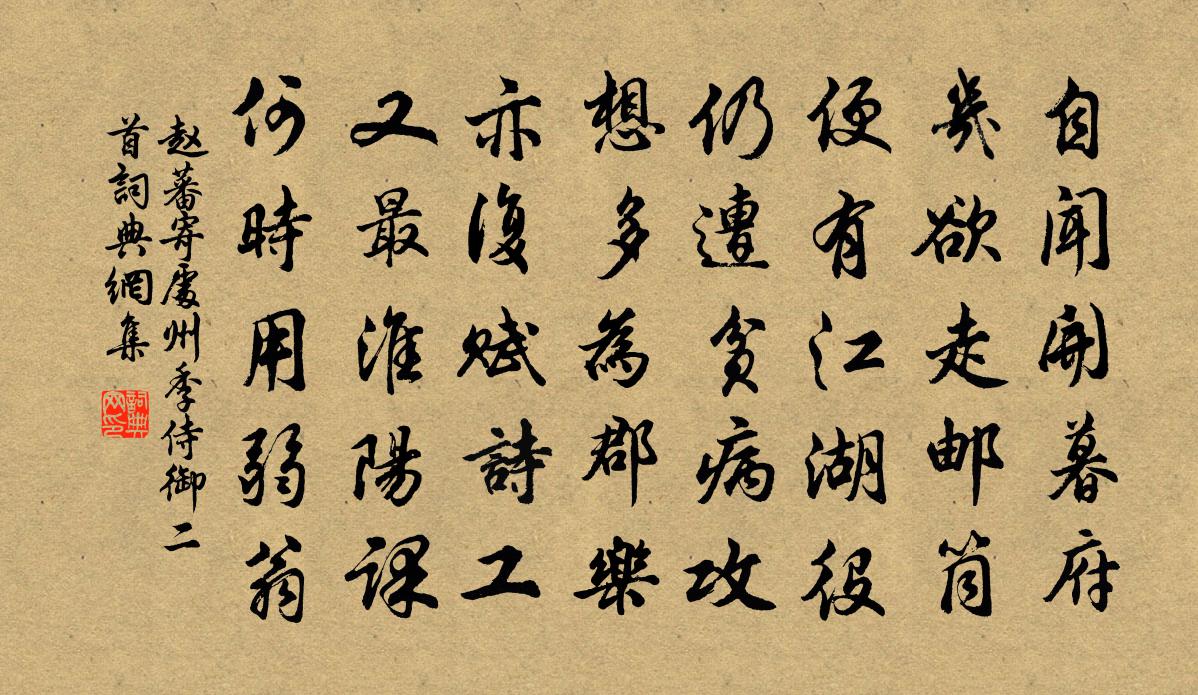 自聞開暮府
幾欲走邮筒
便有江湖役
仍遭貧病攻
想多為郡樂
亦復賦詩工
又最淮陽課
何時用弱翁
赵蕃寄處州季侍御二
首詞典網集
詞典
网印